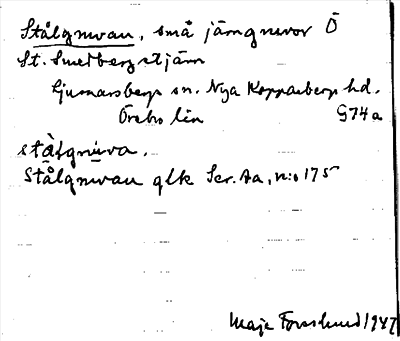 Stålgnuvan, små järngruvor Ö
St. Smedbergstjärn
Ljusnarsbergs sn. Nya Kopparbergs hd.
Örebro län G74a
Stålgnuvan qlk Ser. Aa, n:o 175
Maja Forsslund 1947